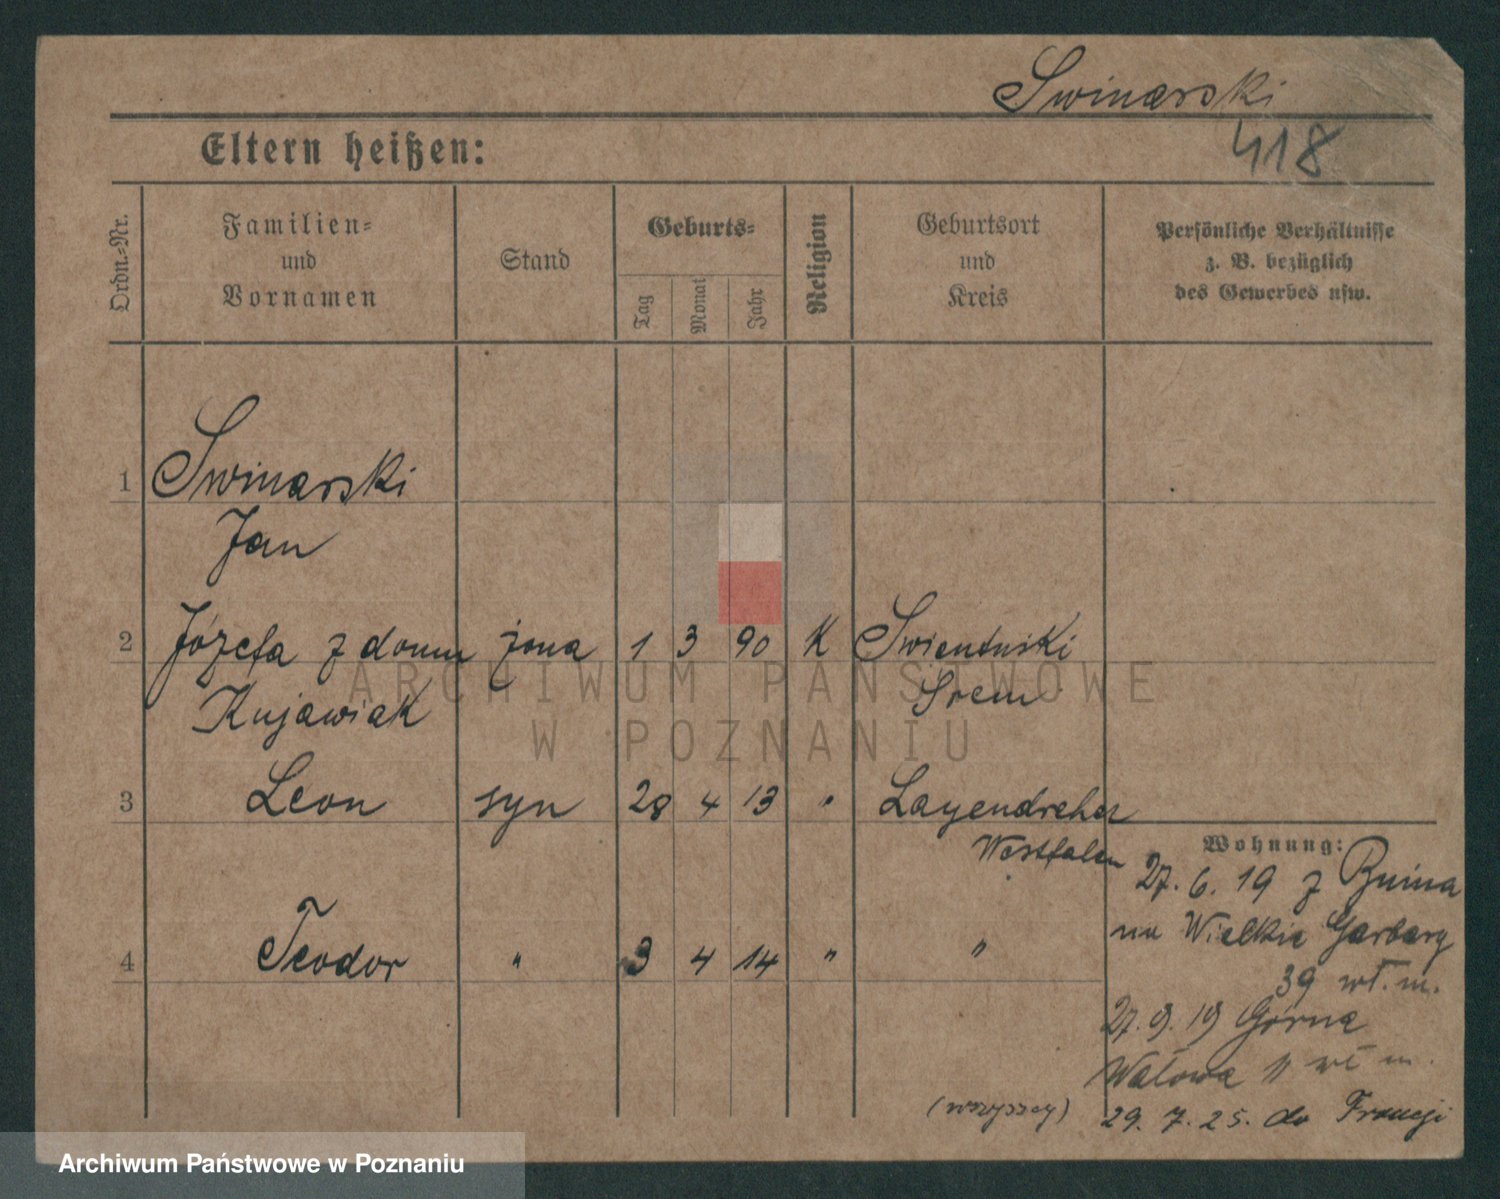 Swinarski
418
Eltern heißen:
Ordn.-Nr.
Familien-
und
Vornamen
Stand
Geburts-
Tag
Monat
Jahr
Religion
Geburtsort
und
Kreis
Persönliche Verhältnisse
z. B. bezüglich
des Gewerbes usw.
1 Swinarski
Jan
2 Józefa z domu żona 1 3 90 K
Kujawiak Śrem
3 Leon syn 28 4 13 "
Westfalen
4 Teodor " 3 4 14 " "
Wohnung:
27. 6. 19 z Bnina
na Wielkie Garbary
39 wł. m.
27. 9. 19 Górna
Wałowa 11 wł m.
(wszyscy) 29. 7. 25. do Francji
ARCHIWUM PAŃSTWOWE
W POZNANIU
Archiwum Państwowe w Poznaniu